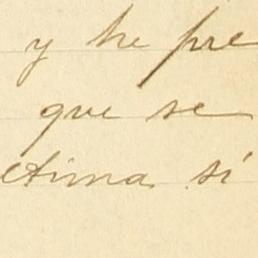 y he pre
que se
etima si